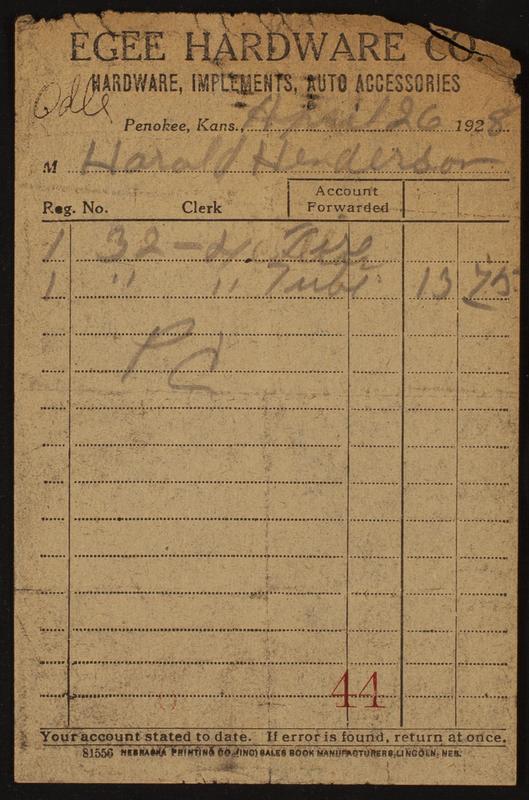 EGEE HARDWARE CO.
HARDWARE, IMPLEMENTS, AUTO ACCESSORIES
Odle
Penokee, Kans., April 26 1928
M Harold Henderson
Account Forwarded
Reg. No. Clerk
1 32-4 Tire
1 " " Tube 13 75
PC
44
Your account stated to date. If error is found, return at once.
81556 NEBRASKA PRINTING CO. (INC) SALES BOOK MANUFACTURERS, LINCOLN, NEB.